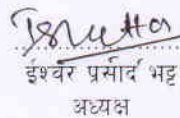 ईश्वर प्रसाद भट्ट
अध्यक्ष